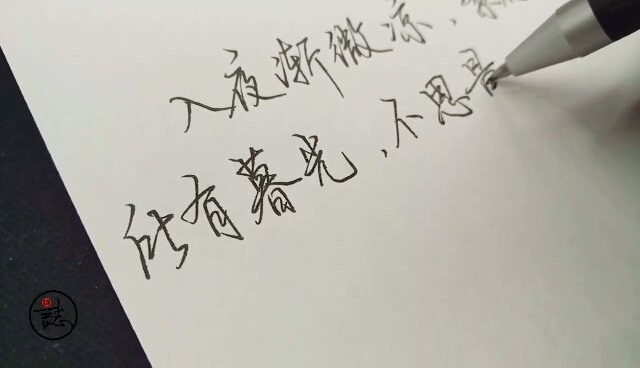 入夜渐微凉，
所有暮光、不思
誌